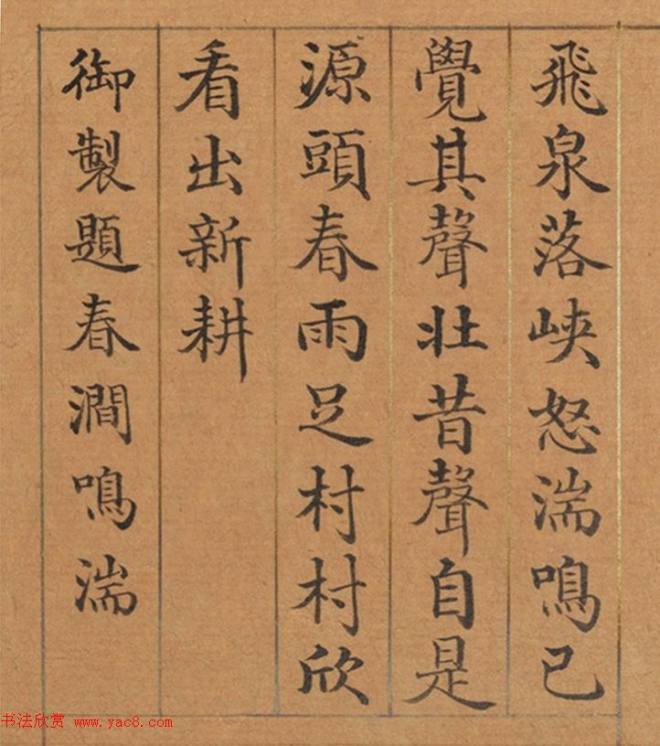 飛泉落峡怒湍鳴已
覺其聲壯昔聲自是
源頭春雨足村村欣
看出新耕
御製題春澗鳴湍
书法欣赏 www.yac8.com